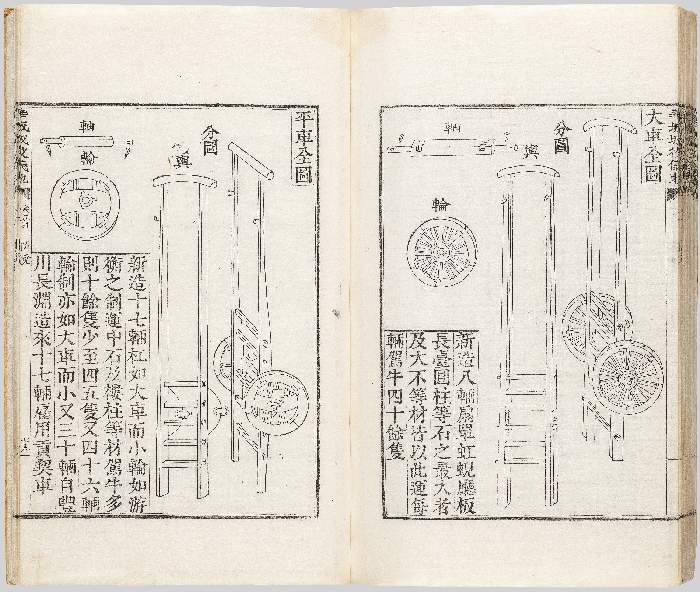 大車全圖
分圖
輿
軸
輪
新造八輛扇單虹蜺廳板
長臺圓柱等石之最大者
及大不等材皆以此運每
輛駕牛四十餘隻
平車全圖
分圖
輿
軸
輪
新造十七輛杠如大車而小輪如游
衡之制運中石及樓柱等材駕牛多
則十餘隻少至四五隻又四十六輛
輪制亦如大車而小又三十輛自豐
川長淵造來十七輛雇用貢契車